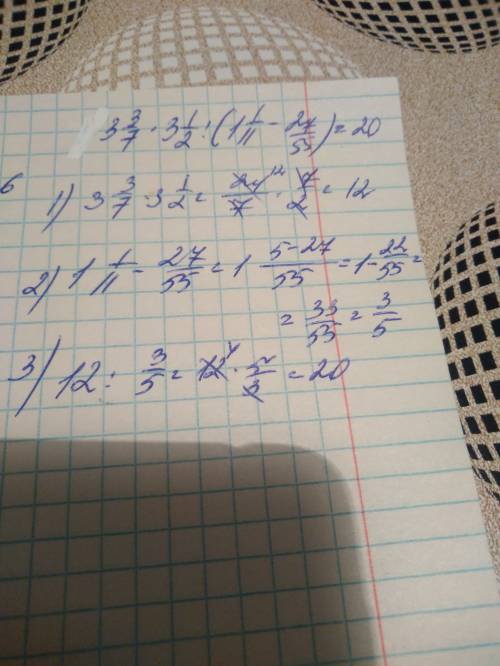 3 3/7 · 3 1/2 : (1 1/11 - 27/55) = 20
6
1) 3 3/7 · 3 1/2 = 24 12/7 · 7/2 = 12
2) 1 1/11 - 27/55 = 1 5-27/55 = 1 - 22/55 =
= 33/55 = 3/5
3) 12 : 3/5 = 12 4 · 5/3 = 20